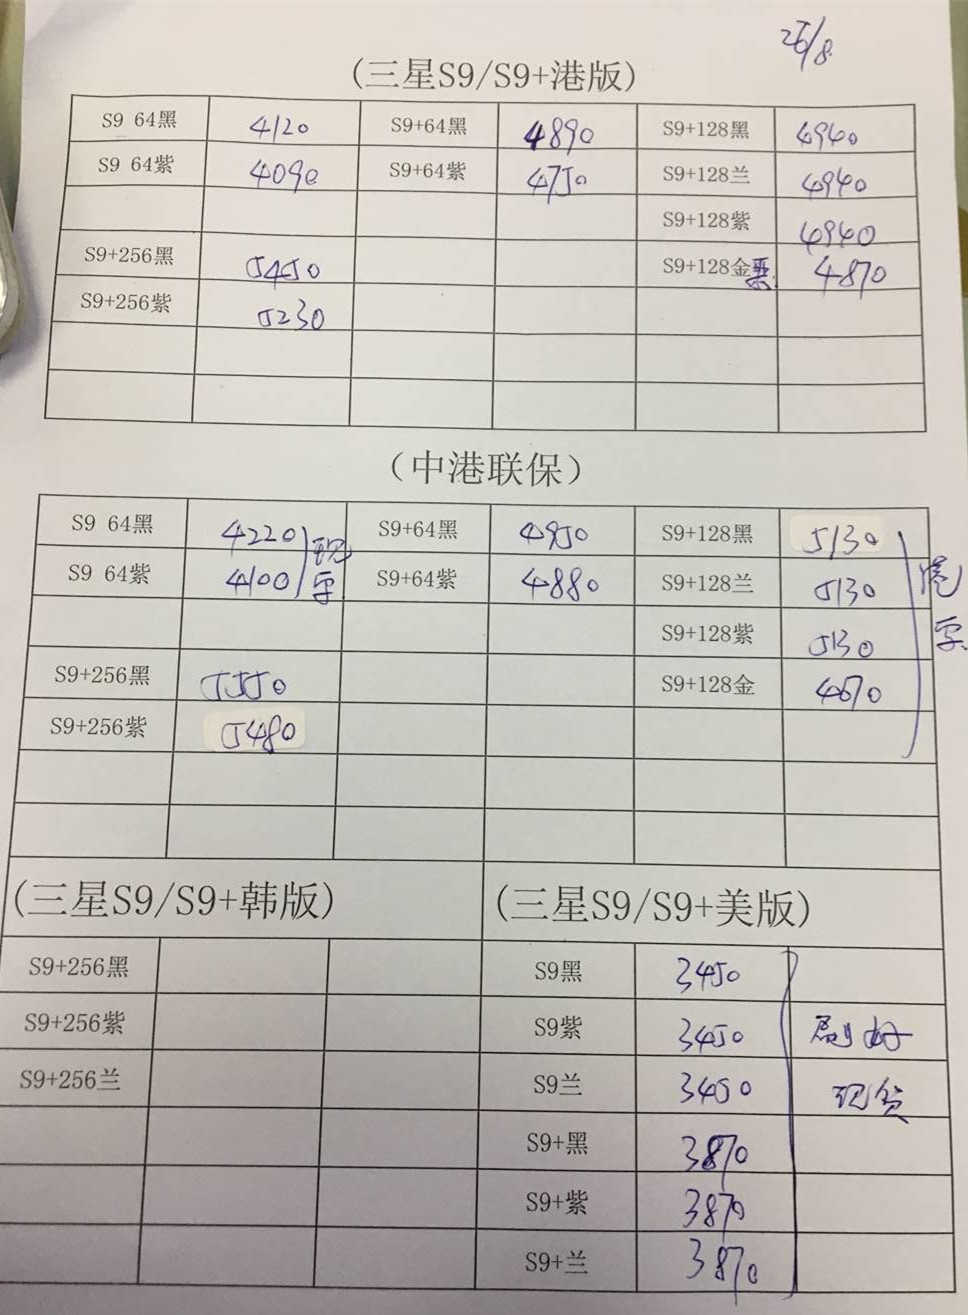 25/8
(三星S9/S9+港版)
S9 64黑 4120 S9+64黑 4890 S9+128黑 4940
S9 64紫 4090 S9+64紫 4750 S9+128兰 4940
S9+128紫 4940
S9+256黑 5450 S9+128金 4870
S9+256紫 5230
(中港联保)
S9 64黑 4220 现 S9+64黑 4950 S9+128黑 5130
S9 64紫 4100 S9+64紫 4880 S9+128兰 5130
S9+128紫 5130
S9+256黑 5550 S9+128金 4670
S9+256紫 5480
(三星S9/S9+韩版) (三星S9/S9+美版)
S9+256黑 S9黑 3450
S9+256紫 S9紫 3450 刷好
S9+256兰 S9兰 3450 现货
S9+黑 3870
S9+紫 3870
S9+兰 3870